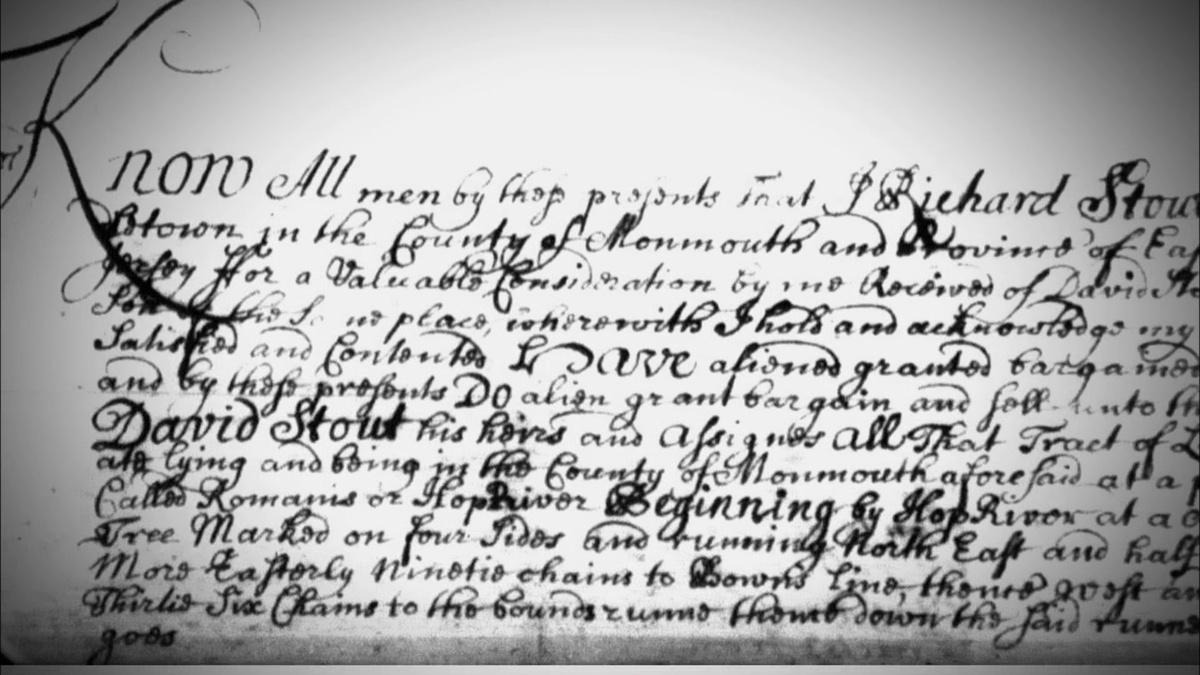 Know All men by these presents That I Richard Stou
letown in the County of Monmouth and Province of Eas
Jersey ffor a Valuable Consideration by me Received of David Sto
Son the place, wherewith I hold and acknowledge my
Satisfied and Contented Have aliened granted bargained
and by these presents Do alien grant bargain and sell unto th
David Stout his heirs and Assignes All That Tract of L
ate lying and being in the County of Monmouth aforesaid at a p
Called Romanis or Hop River Beginning by Hop River at a
Tree Marked on four Sides and running North East and half
More Easterly Ninetie chains to Bowns line, thence west an
Thirtie Six Chains to the bounds runne thence down the said runne
goes